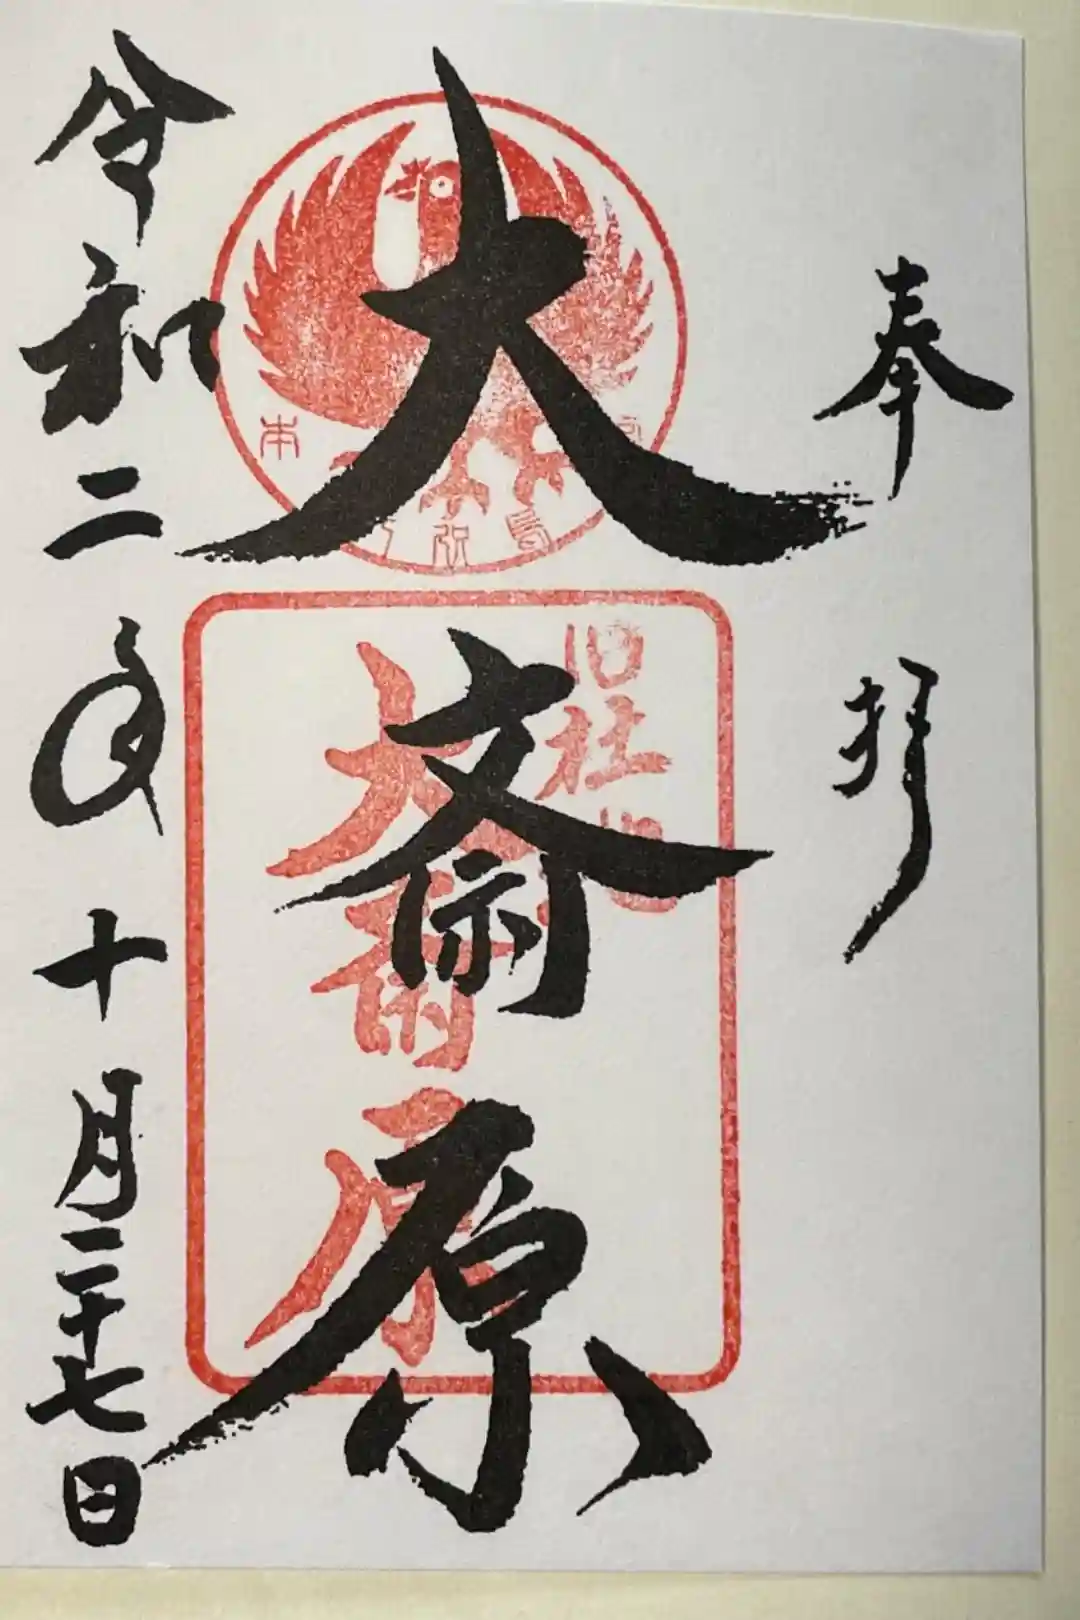 奉拝
大斎原
令和二年十月二十七日
旧社地
大斎原